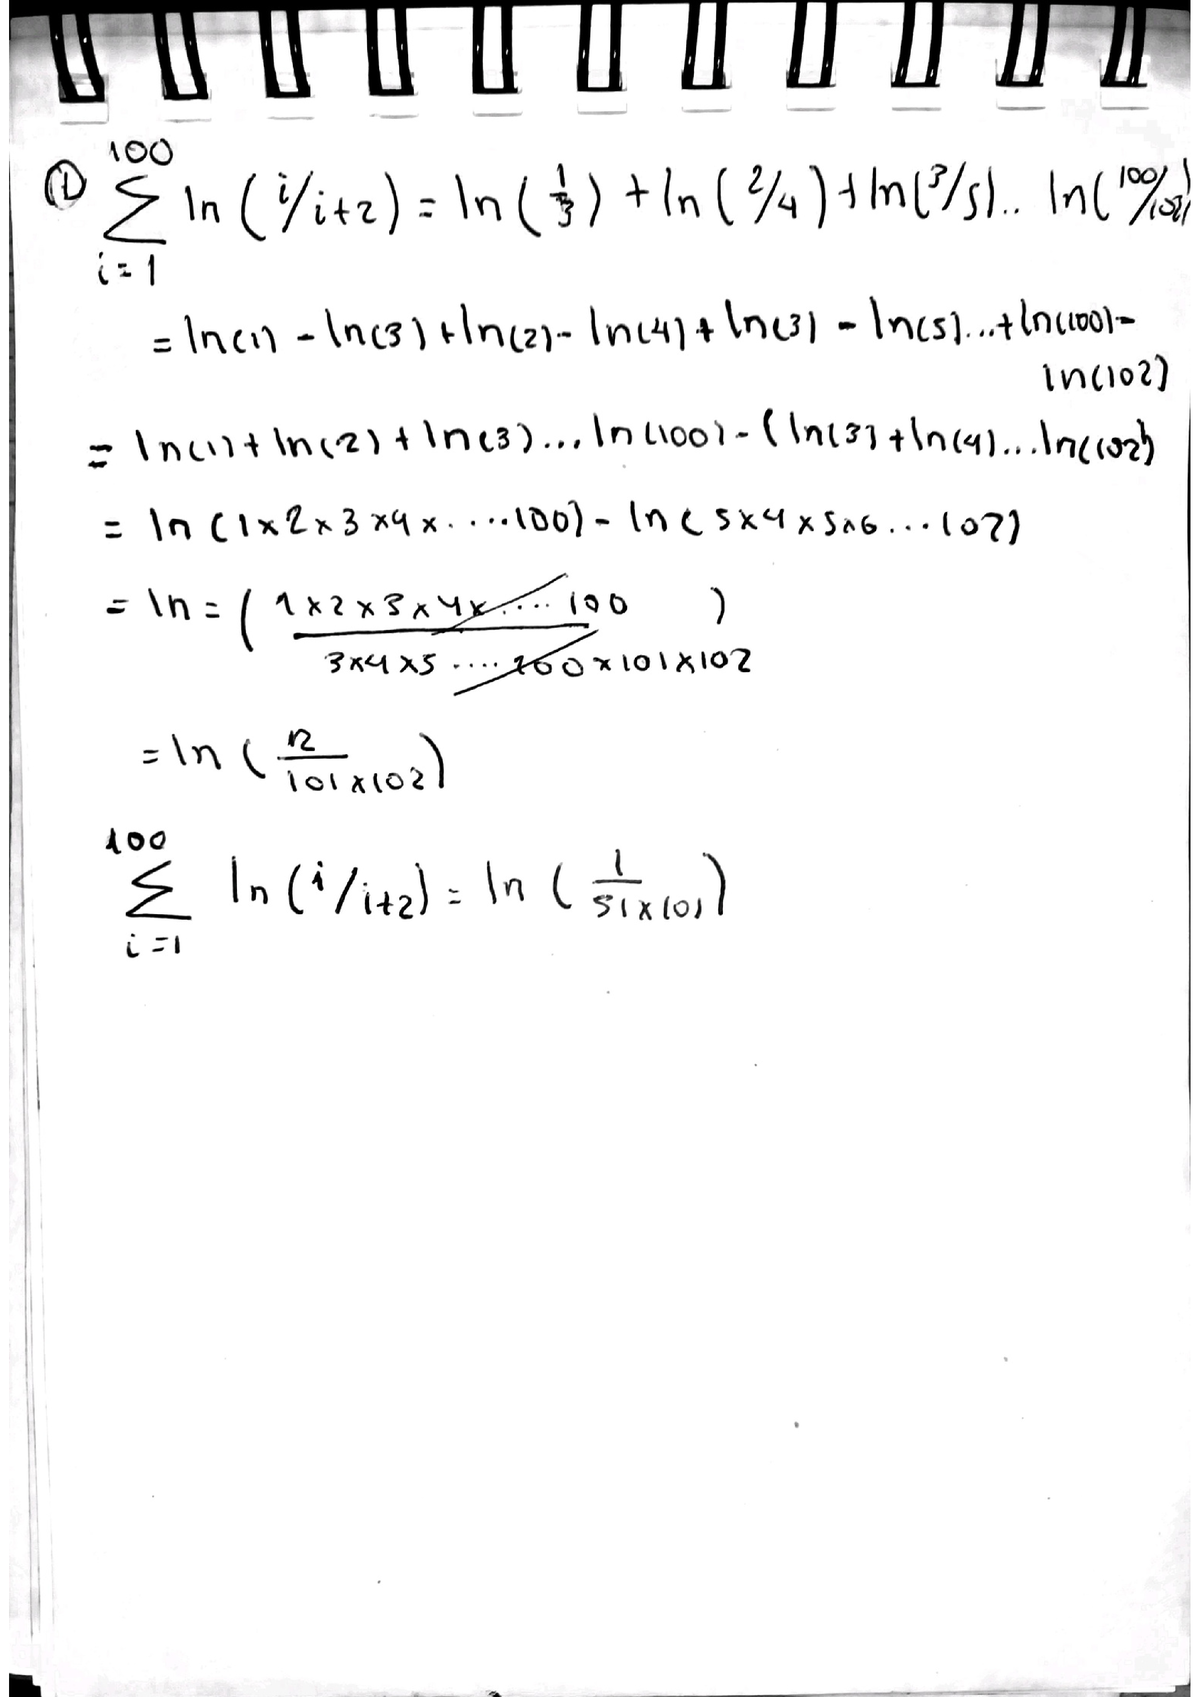 ① 100
∑ ln ( i/i+2) = ln ( 1/3 ) + ln ( 2/4 ) + ln (3/5).. ln( 100/102)
i=1
= ln(1) - ln(3) + ln(2) - ln(4) + ln(3) - ln(5)...+ ln(100) -
ln(102)
= ln(1) + ln(2) + ln(3)... ln(100) - ( ln(3) + ln(4)... ln(102)
= ln (1×2×3×4×.....100) - ln ( 5×4×5×6...102)
= ln = ( 1×2×3×4×.... 100 )
3×4×5 .... 100×101×102
= ln ( 12
101×102 )
100
∑ ln ( i/i+2) = ln ( 1
51×101 )
i=1